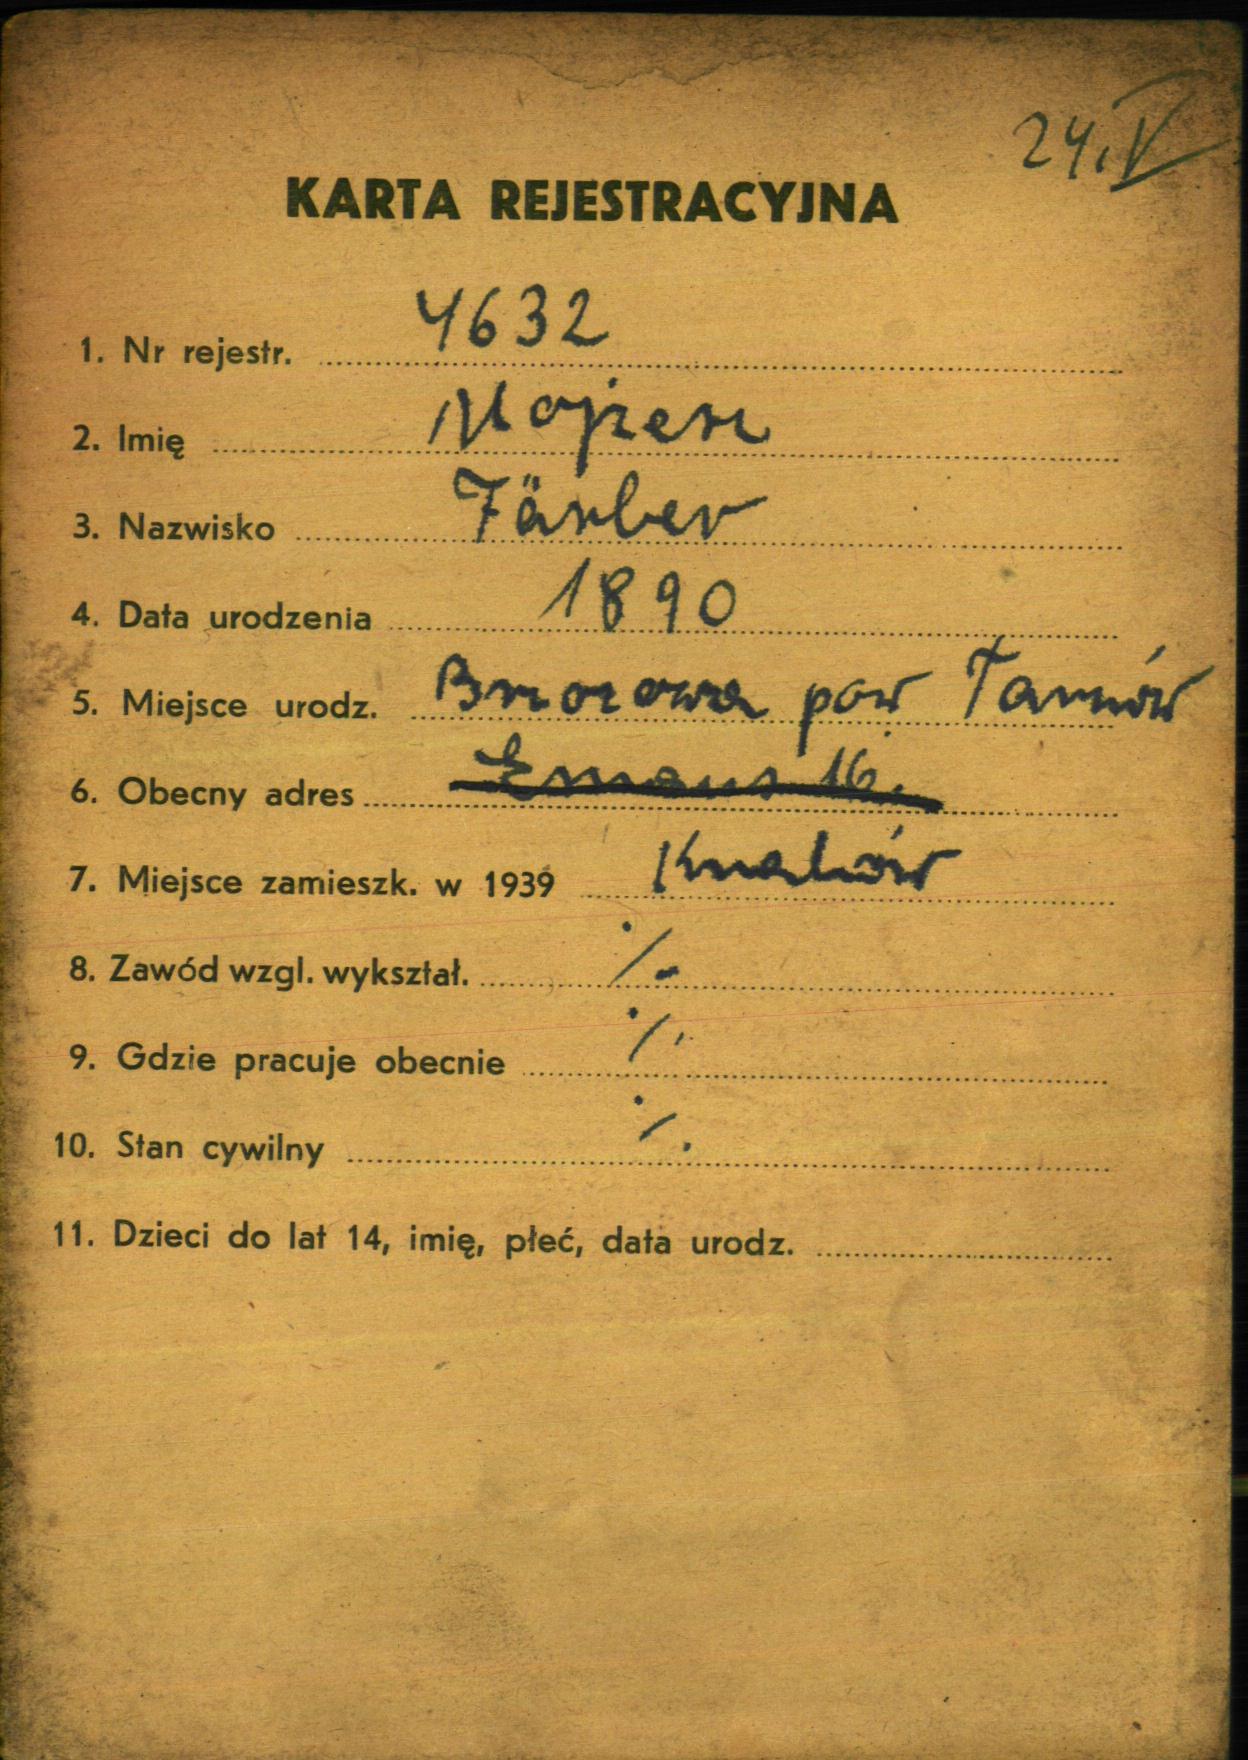 24.V
KARTA REJESTRACYJNA
1. Nr rejestr. 4632
2. Imię Mojżesz
3. Nazwisko Färber
4. Data urodzenia 1890
5. Miejsce urodz. Brzozowa pow Tarnów
6. Obecny adres Emaus 16.
7. Miejsce zamieszk. w 1939 Kraków
8. Zawód wzgl. wykształ. ·/-
9. Gdzie pracuje obecnie ·/·
10. Stan cywilny ·/.
11. Dzieci do lat 14, imię, płeć, data urodz.